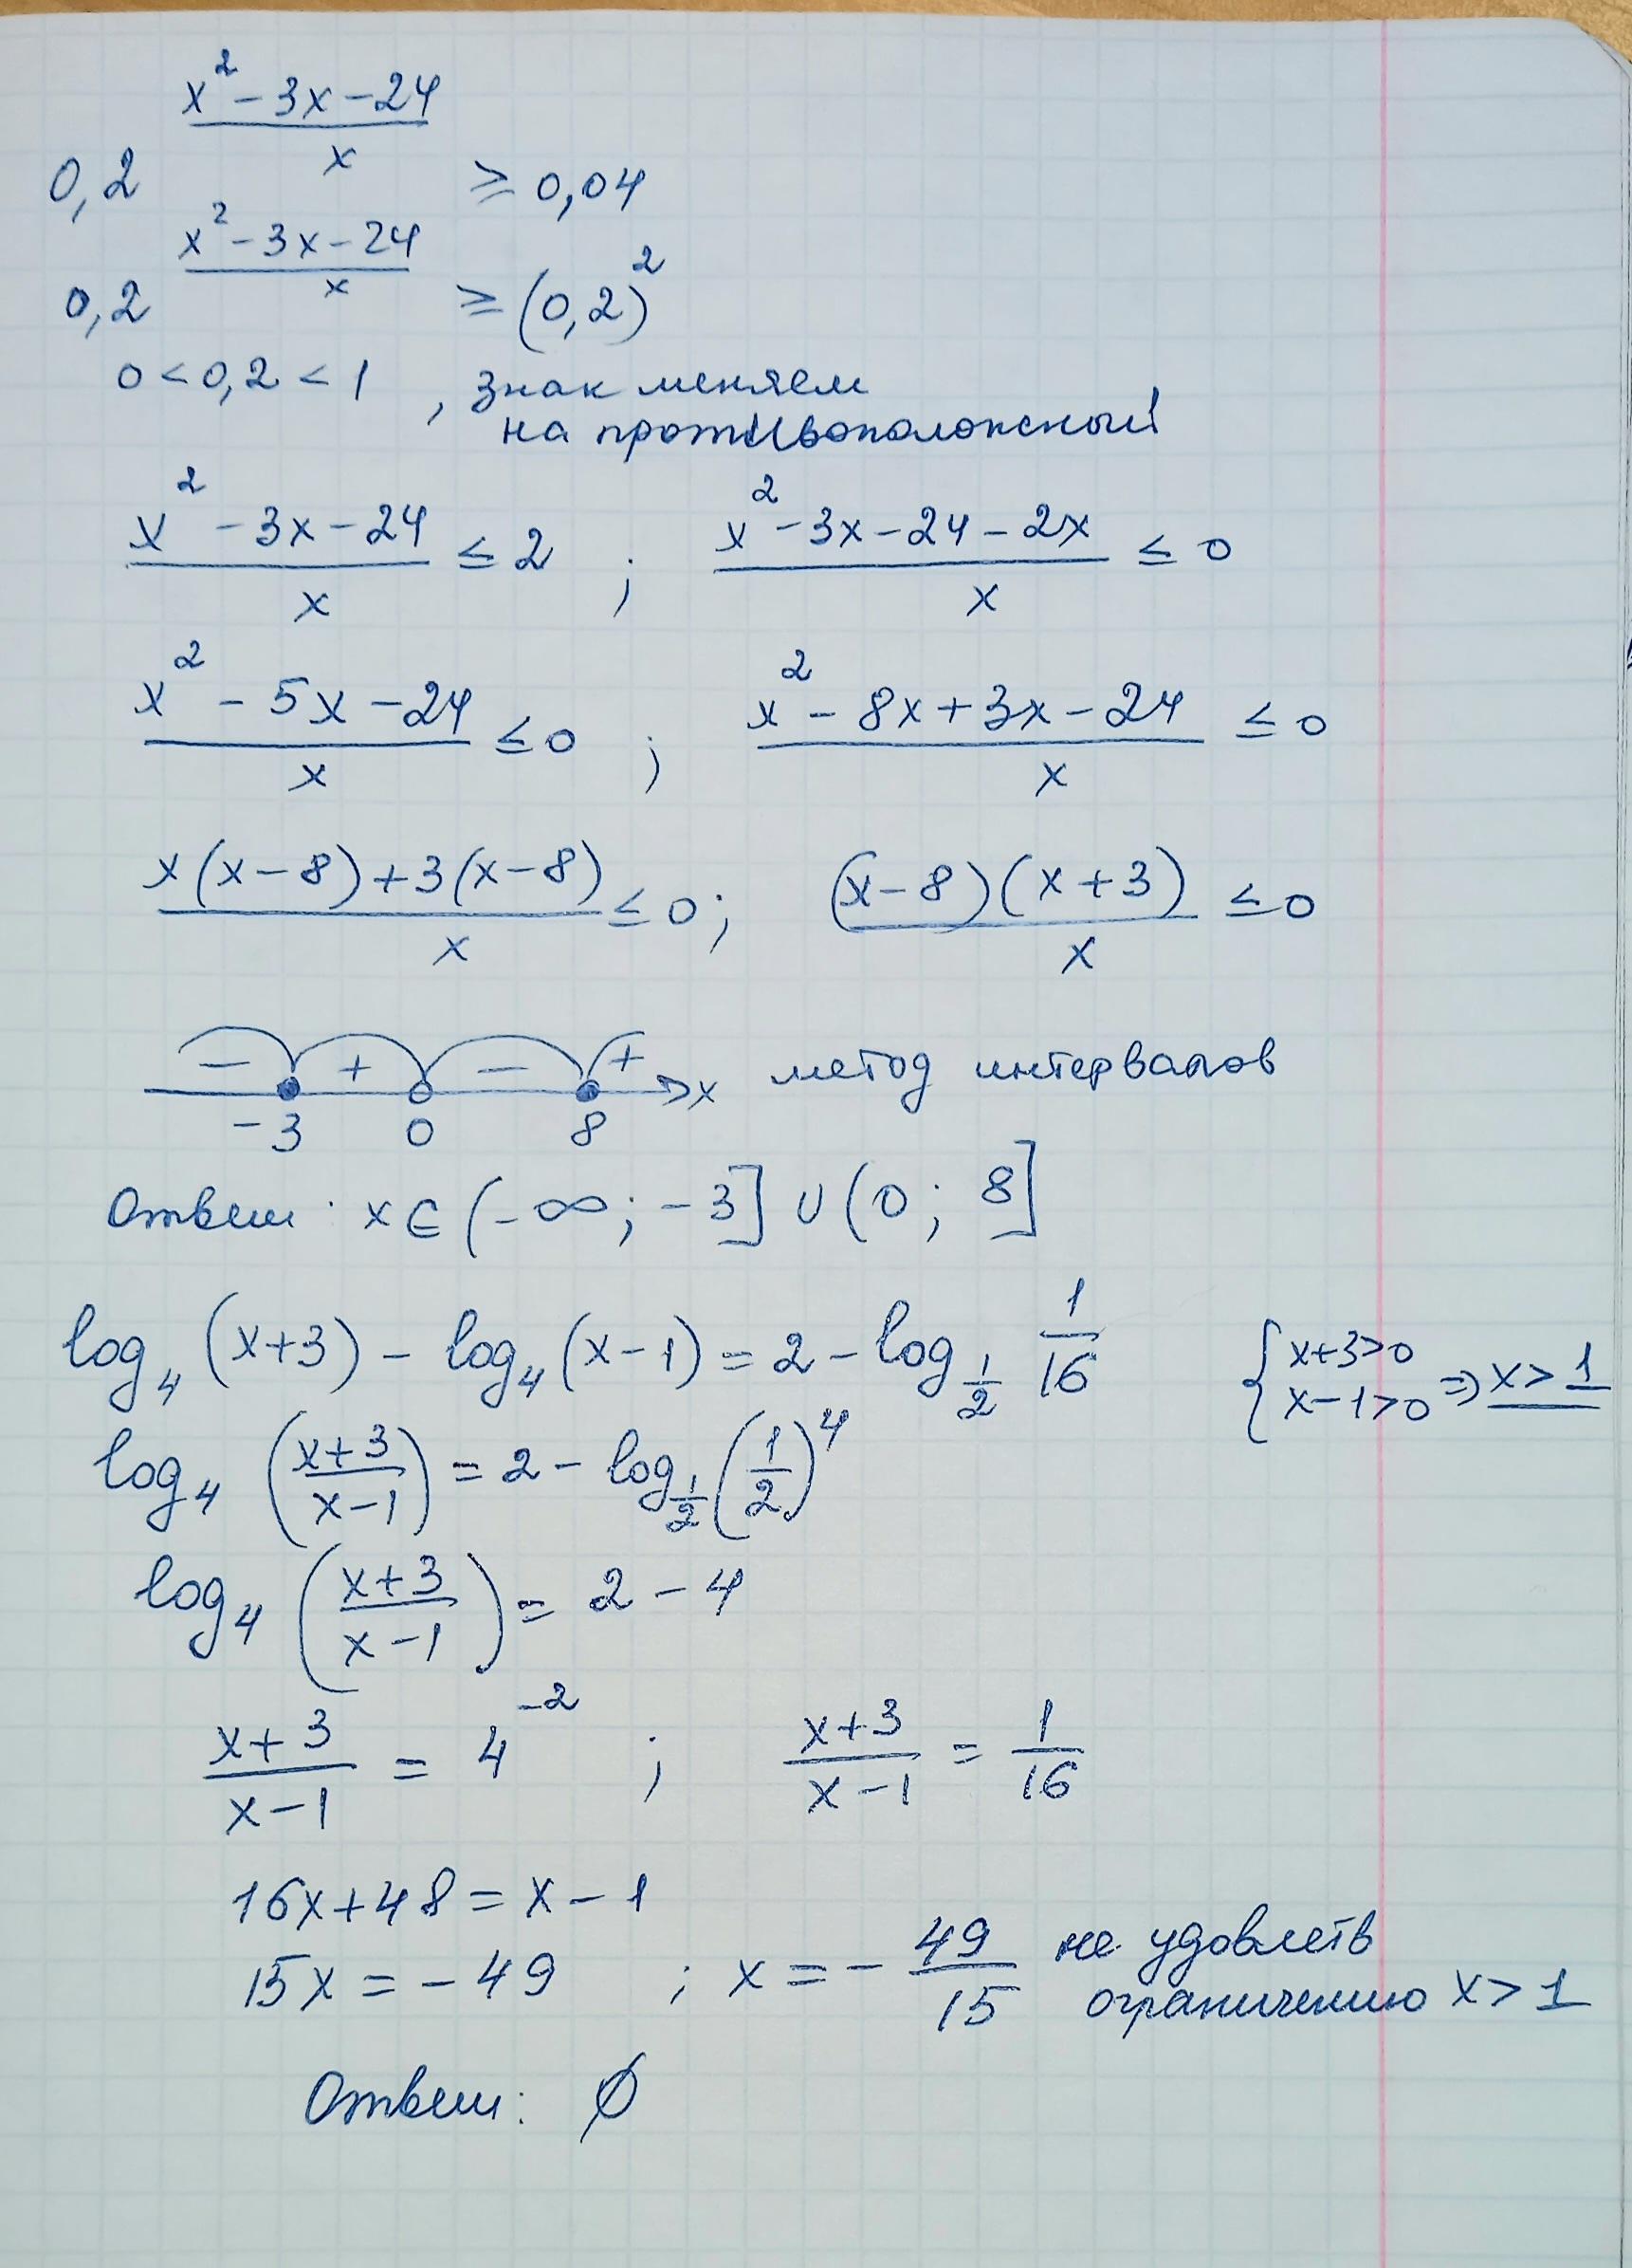 0,2^((x² - 3x - 24)/x) ≥ 0,04
0,2^((x² - 3x - 24)/x) ≥ (0,2)²
0 < 0,2 < 1 , знак меняем
на противоположный
(x² - 3x - 24)/x ≤ 2 ; (x² - 3x - 24 - 2x)/x ≤ 0
(x² - 5x - 24)/x ≤ 0 ; (x² - 8x + 3x - 24)/x ≤ 0
(x(x - 8) + 3(x - 8))/x ≤ 0 ; ((x - 8)(x + 3))/x ≤ 0
− + − + x метод интервалов
-3 0 8
Ответ: x ∈ (-∞; -3] ∪ (0; 8]
log₄(x+3) - log₄(x-1) = 2 - log_{1/2} 1/16 { x+3>0
x-1>0 ⇒ x > 1
log₄((x+3)/(x-1)) = 2 - log_{1/2}(1/2)⁴
log₄((x+3)/(x-1)) = 2 - 4
(x+3)/(x-1) = 4⁻² ; (x+3)/(x-1) = 1/16
16x + 48 = x - 1
15x = -49 ; x = -49/15 не удовлетв
ограничению x > 1
Ответ: ∅